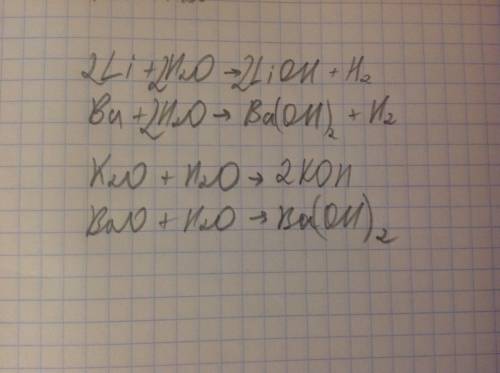 2Li + 2H₂O → 2LiOH + H₂
Ba + 2H₂O → Ba(OH)₂ + H₂
K₂O + H₂O → 2KOH
BaO + H₂O → Ba(OH)₂